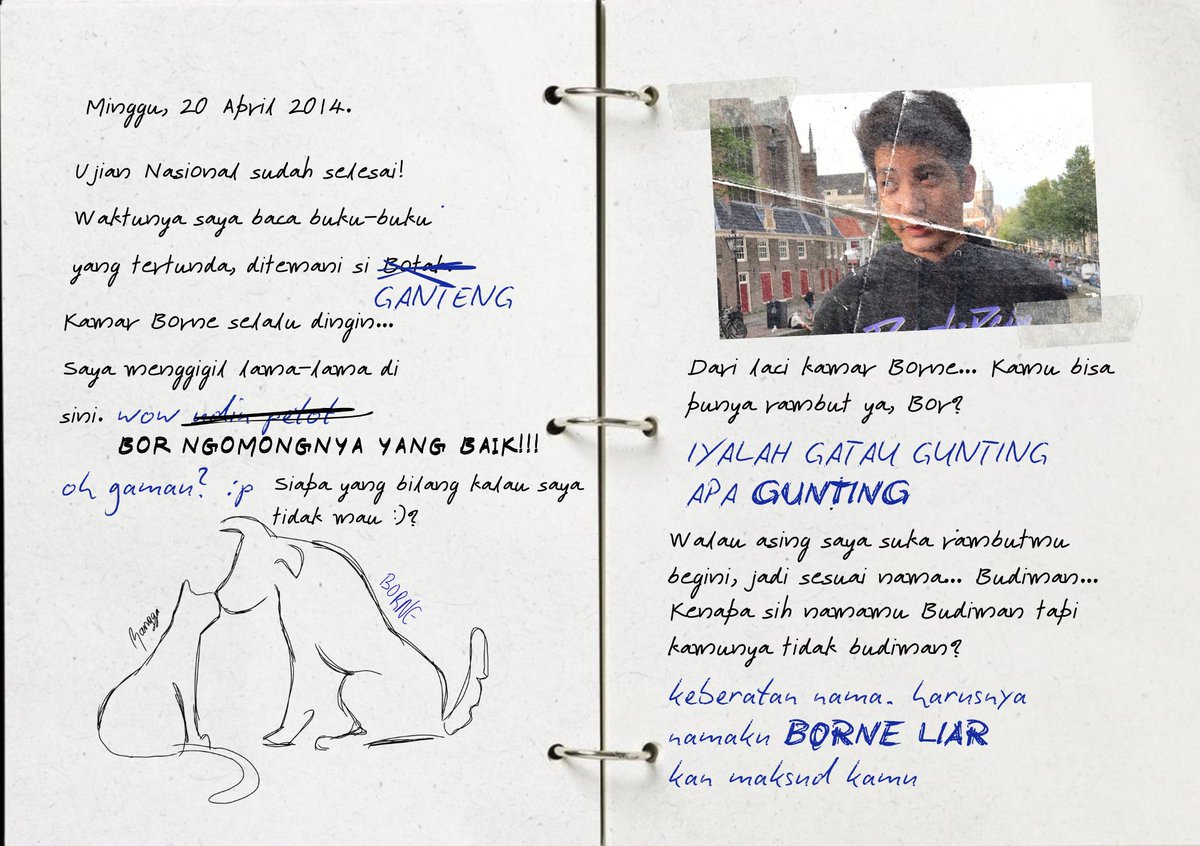 Minggu, 20 April 2014.
Ujian Nasional sudah selesai!
Waktunya saya baca buku-buku
yang tertunda, ditemani si Botak.
GANTENG
Kamar Borne selalu dingin...
Saya menggigil lama-lama di
sini. wow udin pelot
BOR NGOMONGNYA YANG BAIK!!!
oh gaman? :p Siapa yang bilang kalau saya
tidak mau :)?
BORNE
Dari laci kamar Borne... Kamu bisa
punya rambut ya, Bor?
IYALAH GATAU GUNTING
APA GUNTING
Walau asing saya suka rambutmu
begini, jadi sesuai nama... Budiman...
Kenapa sih namamu Budiman tapi
kamunya tidak budiman?
keberatan nama. harusnya
namaku BORNE LIAR
kan maksud kamu